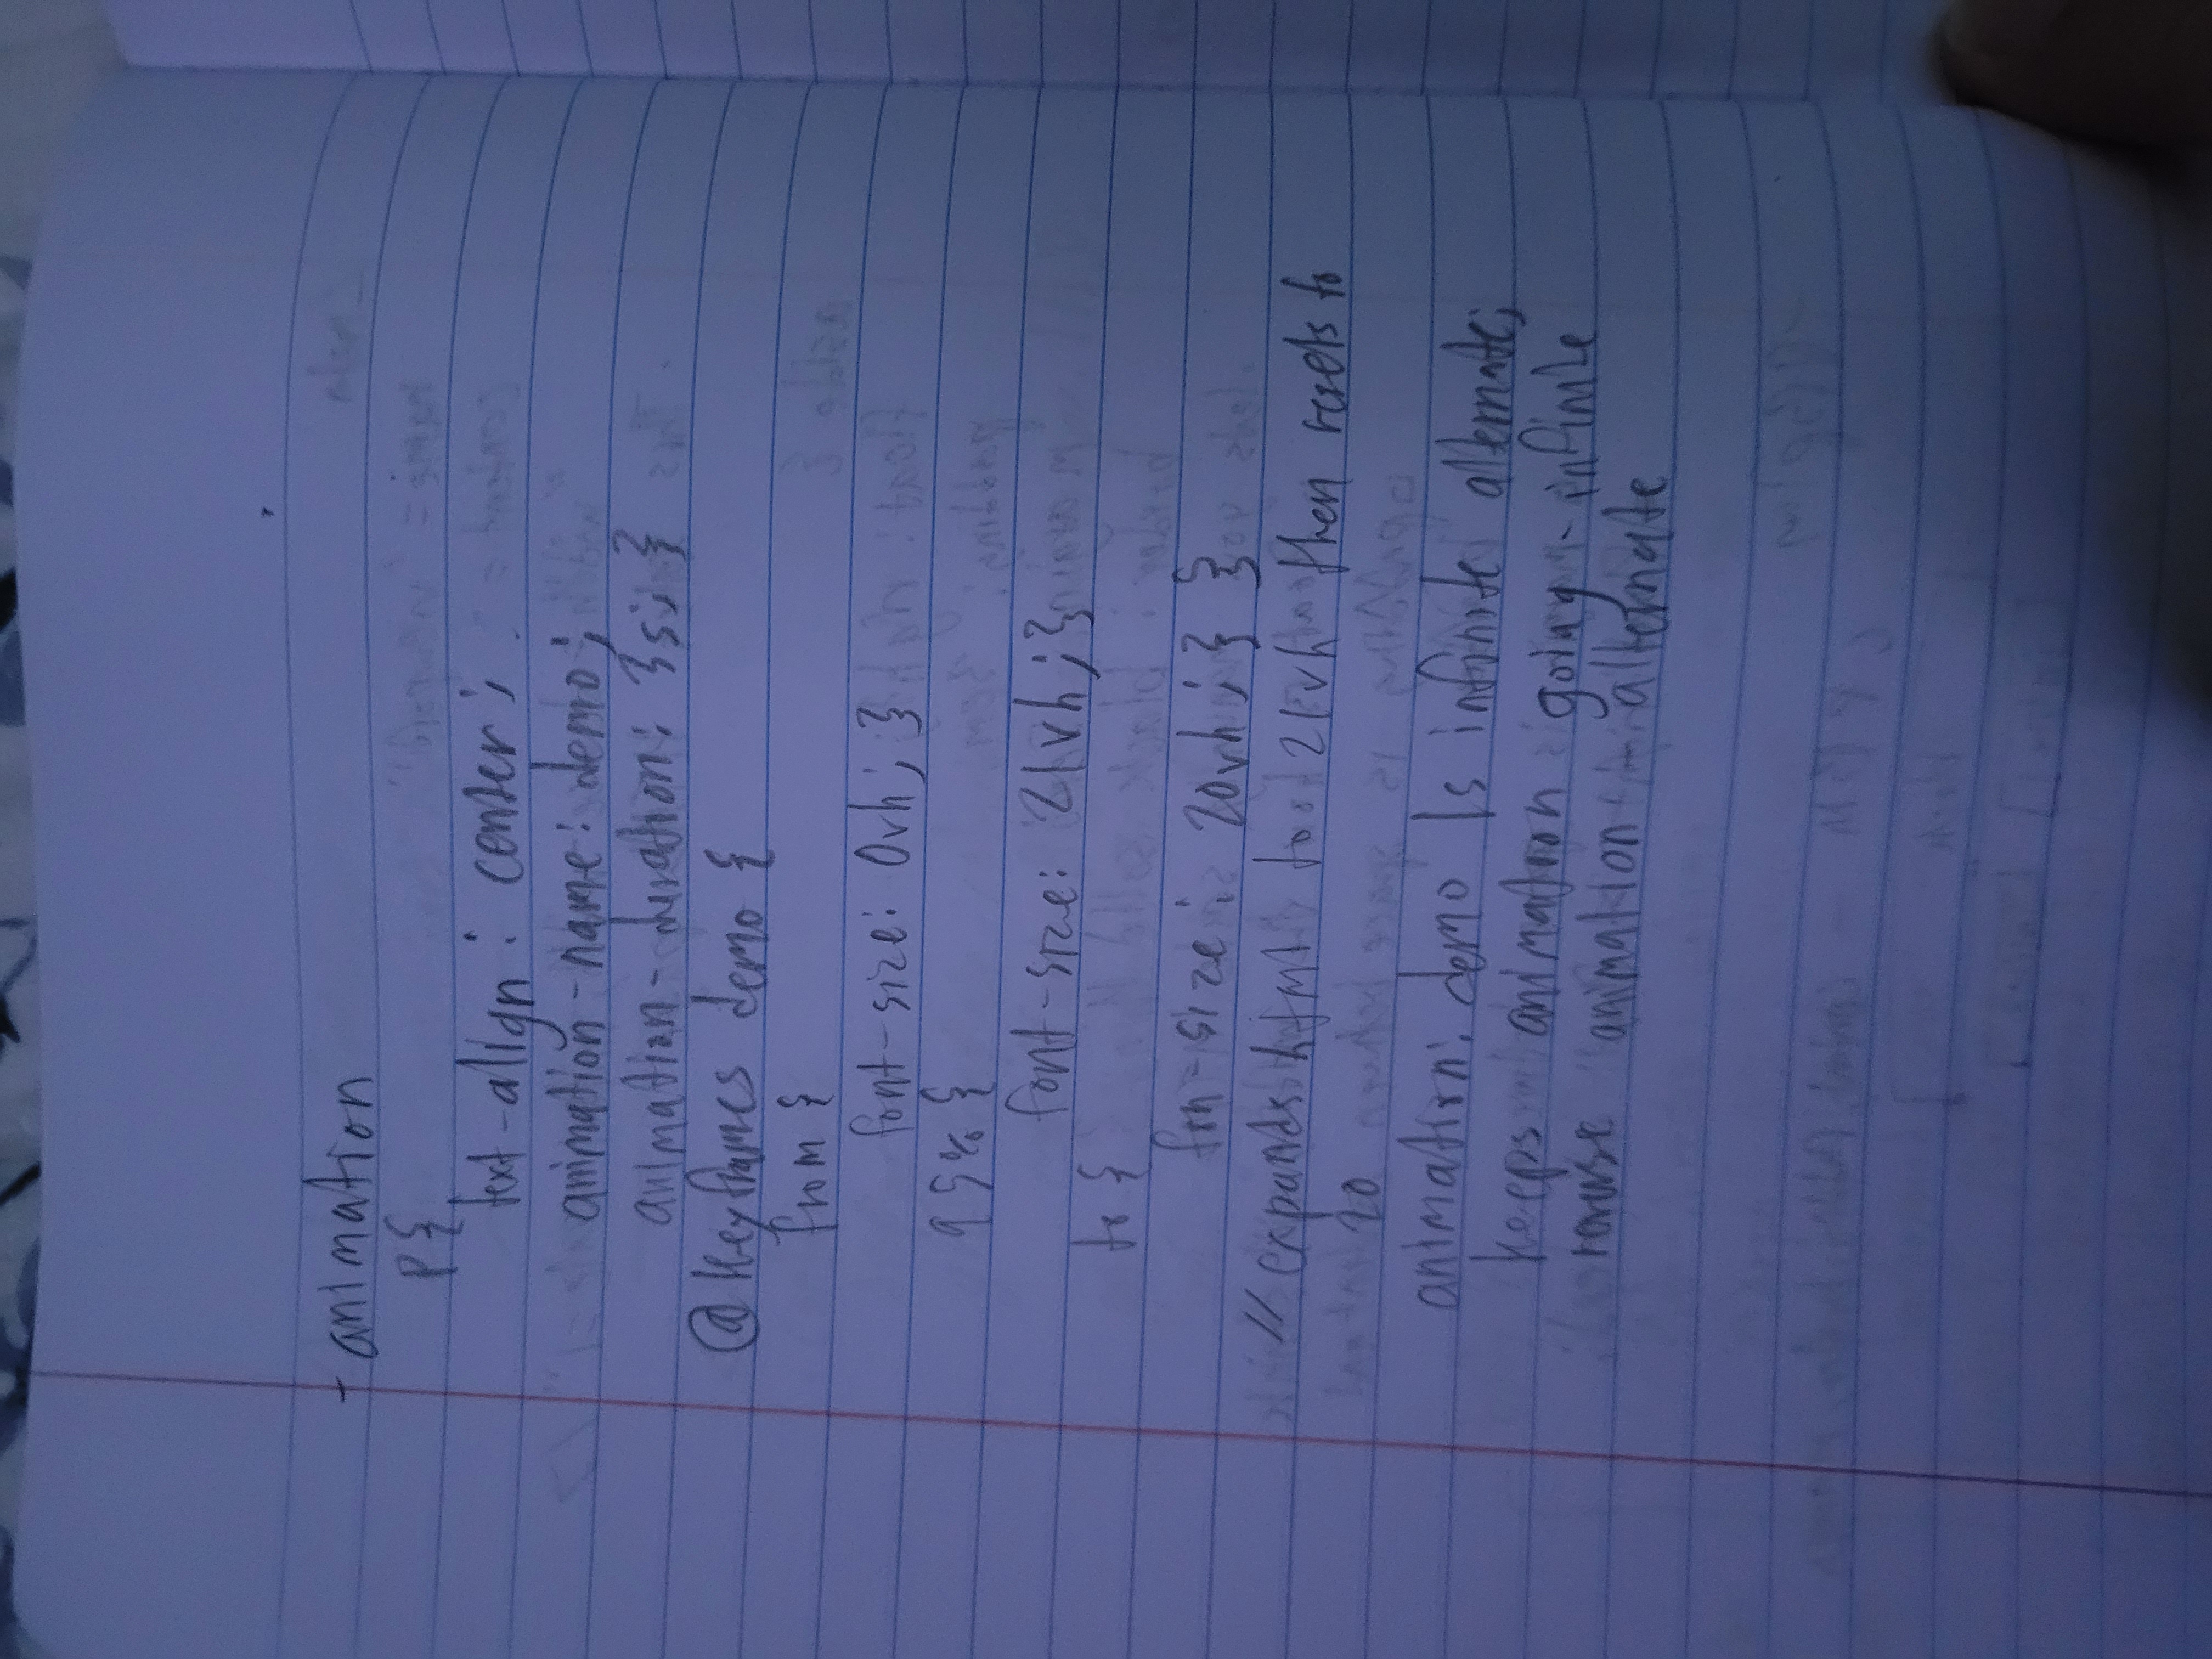 - animation
p{
text-align: center;
animation-name: demo;
animation-duration: 3s; }
@keyframes demo {
from {
font-size: 0vh; }
95% {
font-size: 21vh; }
to {
fon-size: 20vh; } }
// expands html to 21vh then resets to
20
animation: demo 1s infinite alternate;
keeps animation going - infinite
reverse animation - alternate